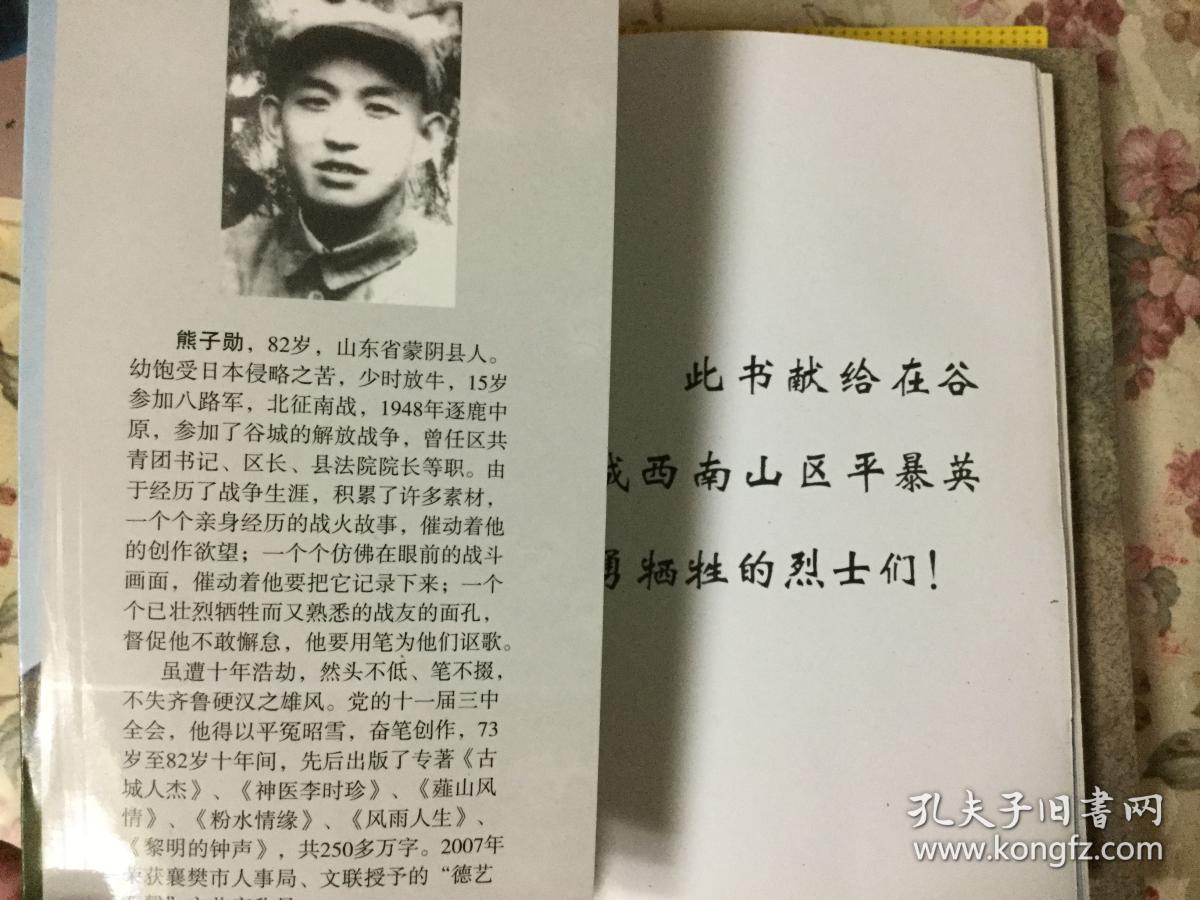 熊子勋，82岁，山东省蒙阴县人。
幼饱受日本侵略之苦，少时放牛，15岁
参加八路军，北征南战，1948年逐鹿中
原，参加了谷城的解放战争，曾任区共
青团书记、区长、县法院院长等职。由
于经历了战争生涯，积累了许多素材，
一个个亲身经历的战火故事，催动着他
的创作欲望；一个个仿佛在眼前的战斗
画面，催动着他要把它记录下来；一个
个已壮烈牺牲而又熟悉的战友的面孔，
督促他不敢懈怠，他要用笔为他们讴歌。
虽遭十年浩劫，然头不低、笔不掇，
不失齐鲁硬汉之雄风。党的十一届三中
全会，他得以平冤昭雪，奋笔创作，73
岁至82岁十年间，先后出版了专著《古
城人杰》、《神医李时珍》、《薤山风
情》、《粉水情缘》、《风雨人生》、
《黎明的钟声》，共250多万字。2007年
荣获襄樊市人事局、文联授予的“德艺
此书献给在谷
城西南山区平暴英
勇牺牲的烈士们！
孔夫子旧书网
www.kongfz.com